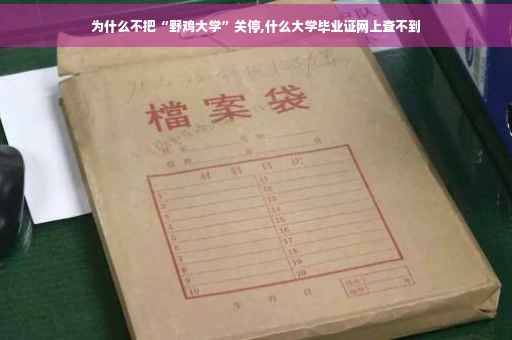 为什么不把“野鸡大学”关停,什么大学毕业证网上查不到
檔案袋
材料目次
1 11
2 12
3 13
4 14
5 15
6 16
7 17
8 18
9 19
10 20
年 月 日